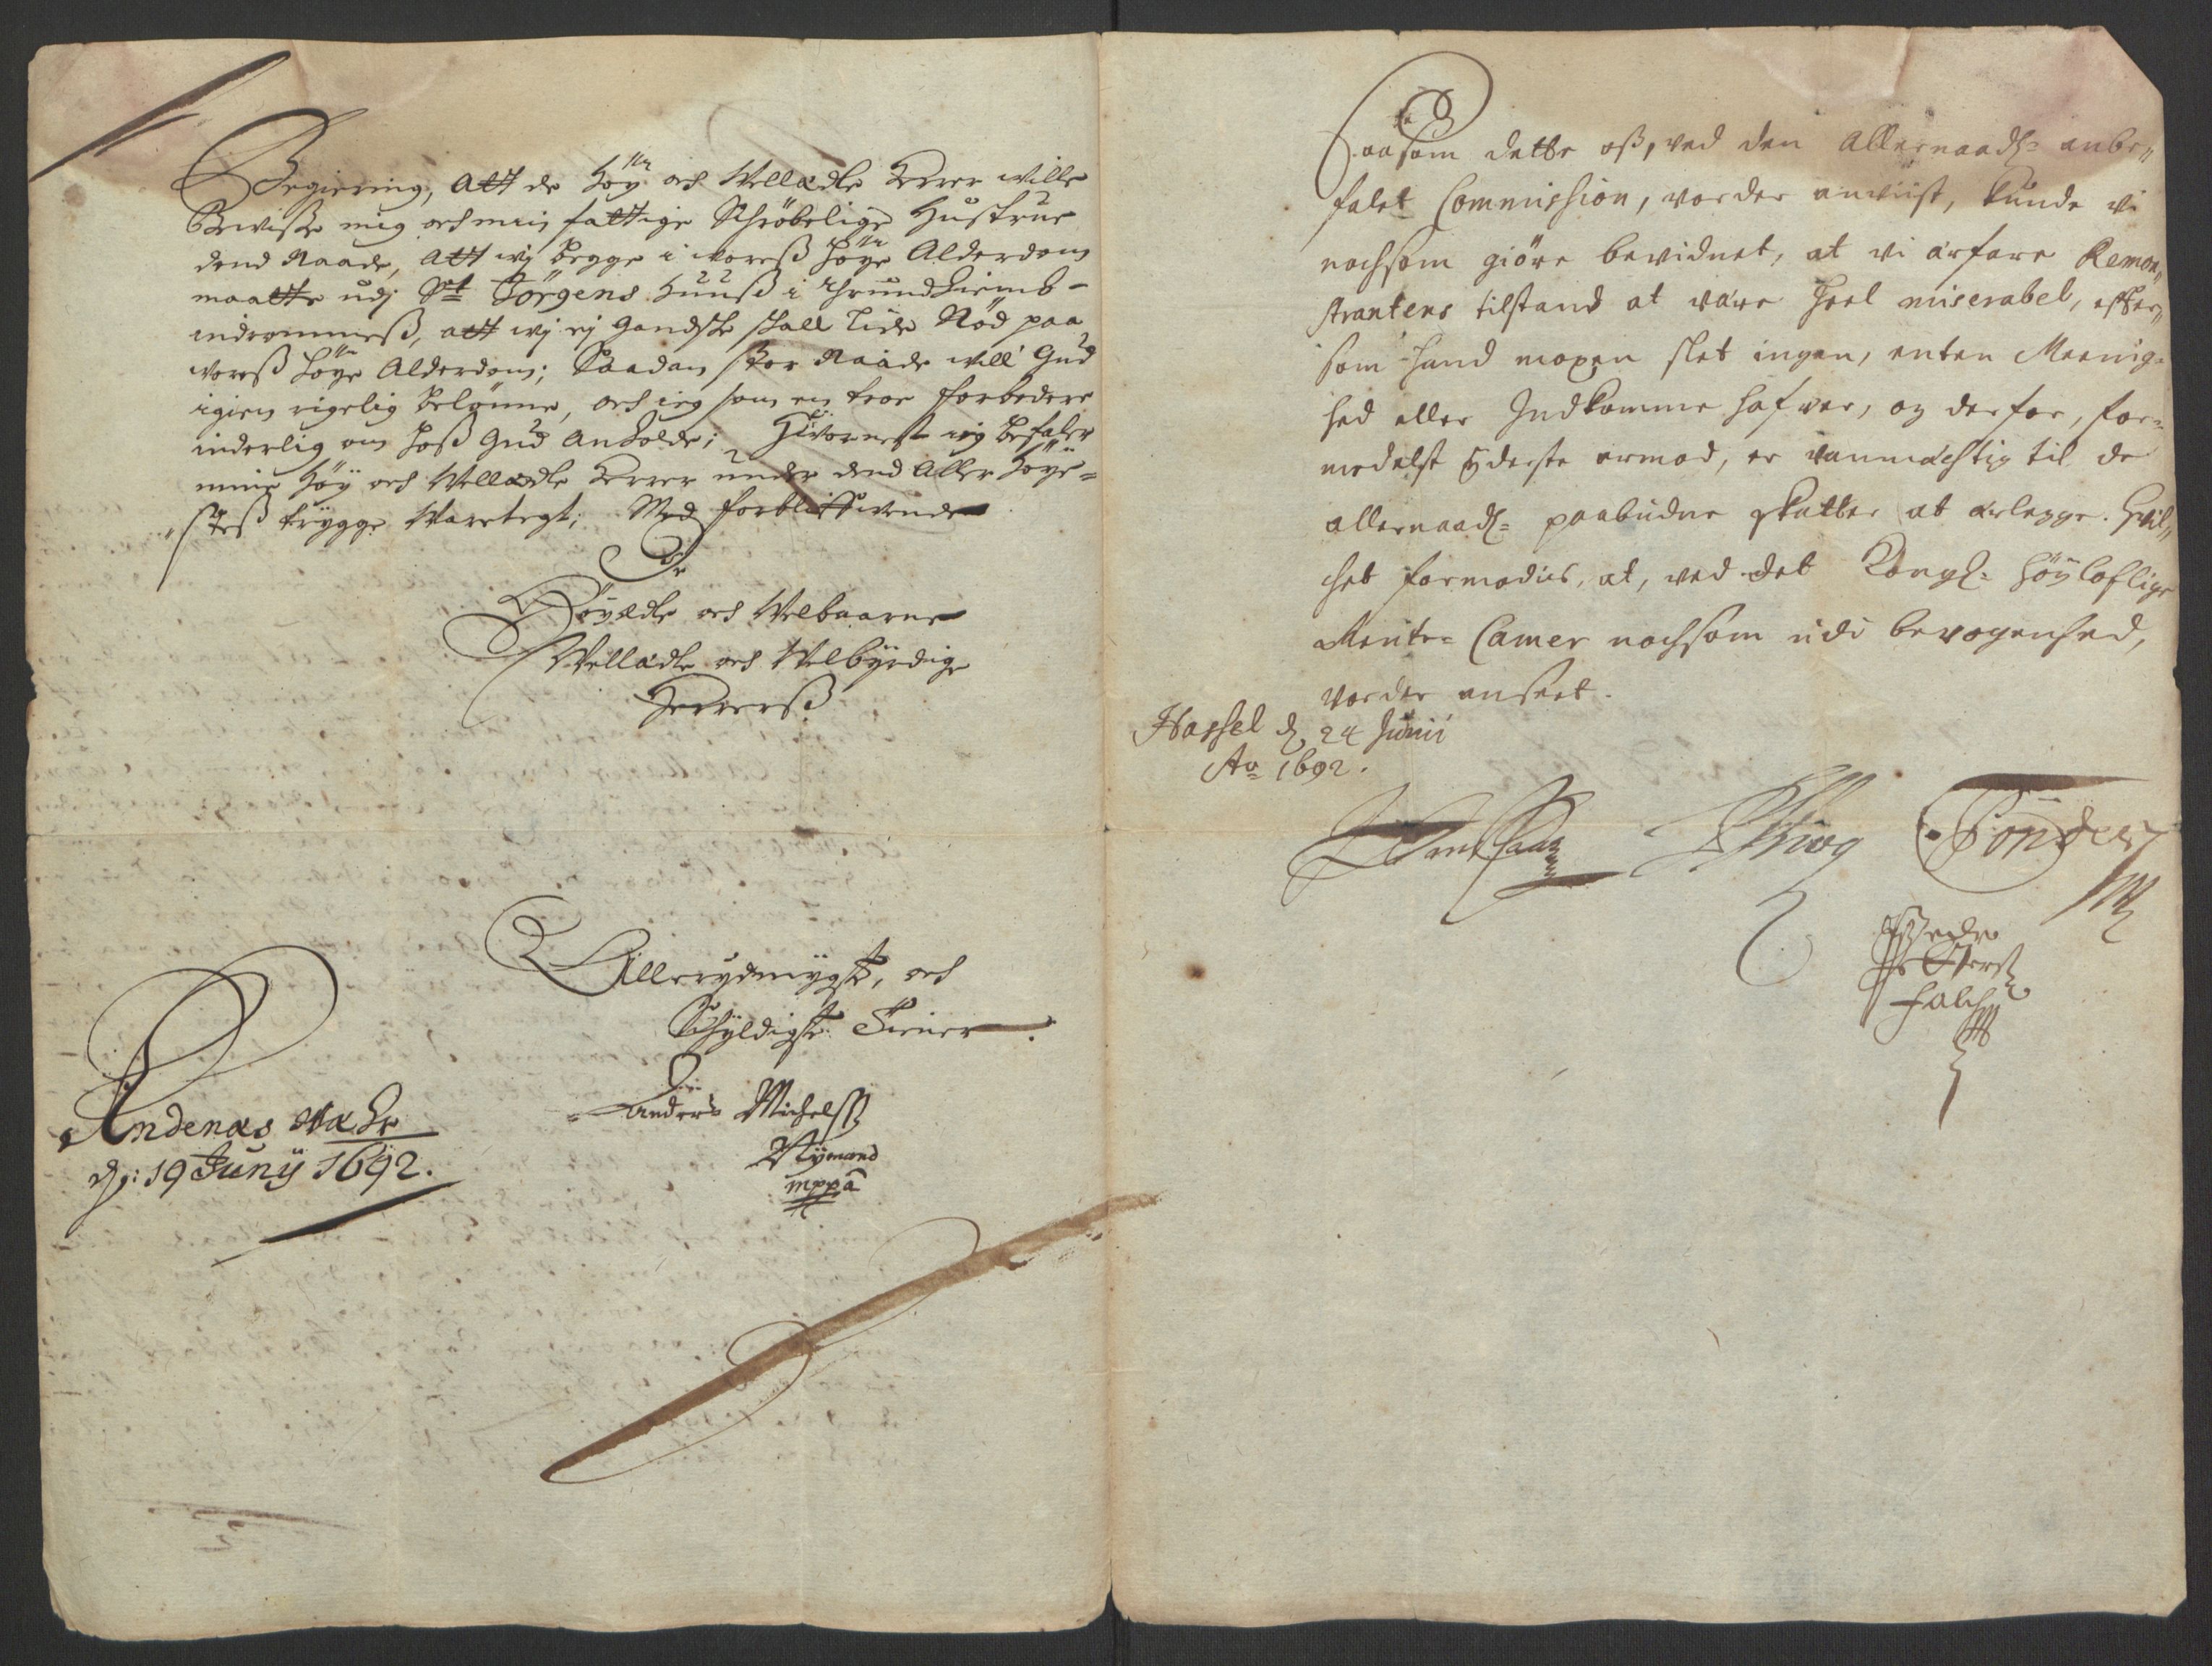 Begiering, Att de Höy: och Vellædle Herrer wille
Bevisße mig och min fattige Schröbelige Hustrue
dend Naade, Att wj begge i woreß höye Alderdom
maatte udj St Jörgens Huuß i Thrundhiemb-
indrømmeß, att wj ej gandske skall lide Nöd paa
woreß höye Alderdom; Saadan stor Naade will Gud
igien rigelig belønne, och ieg som en troe forbedere
inderlig om hoß Gud anholde; Hvornest ieg befaler
mine höy och Vellædle Herrer under dend Aller Höye=
steß trygge Varetegt; Med forblifwende
Höyædle och Velbaarne
Vellædle och Velbyrdige
Herrerß
Allerydmygste, och
Schyldigste Tiener.
Anders Michelß
Nymand
mppa
Andenæs
dj: 19 Junij 1692.
Saasom dette oß, ved den Allernaadl= anbe„
falet Commission, vorder anviist, kunde vi
nochsom giöre bevidnet, at vi erfare Remon„
strantens tilstand at være heel miserabel, efter„
som hand nogen slet ingen, enten Meenig=
hed eller Indkomme hafwer, og derfor, for=
medelst yderste armod, er vanmægtig til de
allernaadl= paabudne skatter at erlegge. Hvil„
chet formodis, at, ved det Kongl= höyloflige
Rente= Camer nochsom udi bevogenhed,
vorder anseet.
Hassel d. 24 Junii
Ao 1692.
Tönder
Falch